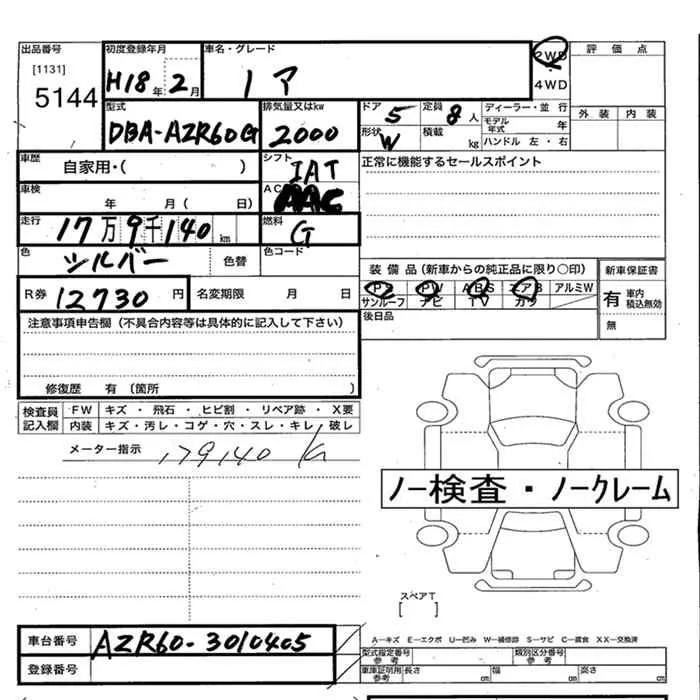 出品番号 初度登録年月 車名・グレード 2WD 評価点
[1131] 5144 H18年 2月 ノア 4WD 外装 内装
型式 排気量又はkw ドア 5 定員 8人 ディーラー・並行
DBA-AZR60G 2000 形状 W 積載 kg モデル年式 年
ハンドル 左・右
車歴 自家用・( ) シフト IAT 正常に機能するセールスポイント
車検 年 月 ( 日) AC AAC
走行 17万9千140km 燃料 G
色 シルバー 色替 色コード
装備品 (新車からの純正品に限り○印) 新車保証書
PS PW ABS エアB アルミW 有 車内 積込無効
サンルーフ ナビ TV カワ 無
R券 12730円 名変期限 月 日 後日品
注意事項申告欄 (不具合内容等は具体的に記入して下さい)
修復歴 有 〔箇所 〕
検査員記入欄 FW キズ・飛石・ヒビ割・リペア跡・X要
内装 キズ・汚レ・コゲ・穴・スレ・キレ・破レ
メーター指示 179140 K
ノー検査・ノークレーム
スペアT
[ ]
車台番号 AZR60-3010405
A―キズ E―エクボ U―凹み W―補修跡 S―サビ C―腐食 XX―交換済
登録番号 型式指定番号 参考 類別区分番号 参考
車庫証明用 参考 長さ cm 幅 cm 高さ cm